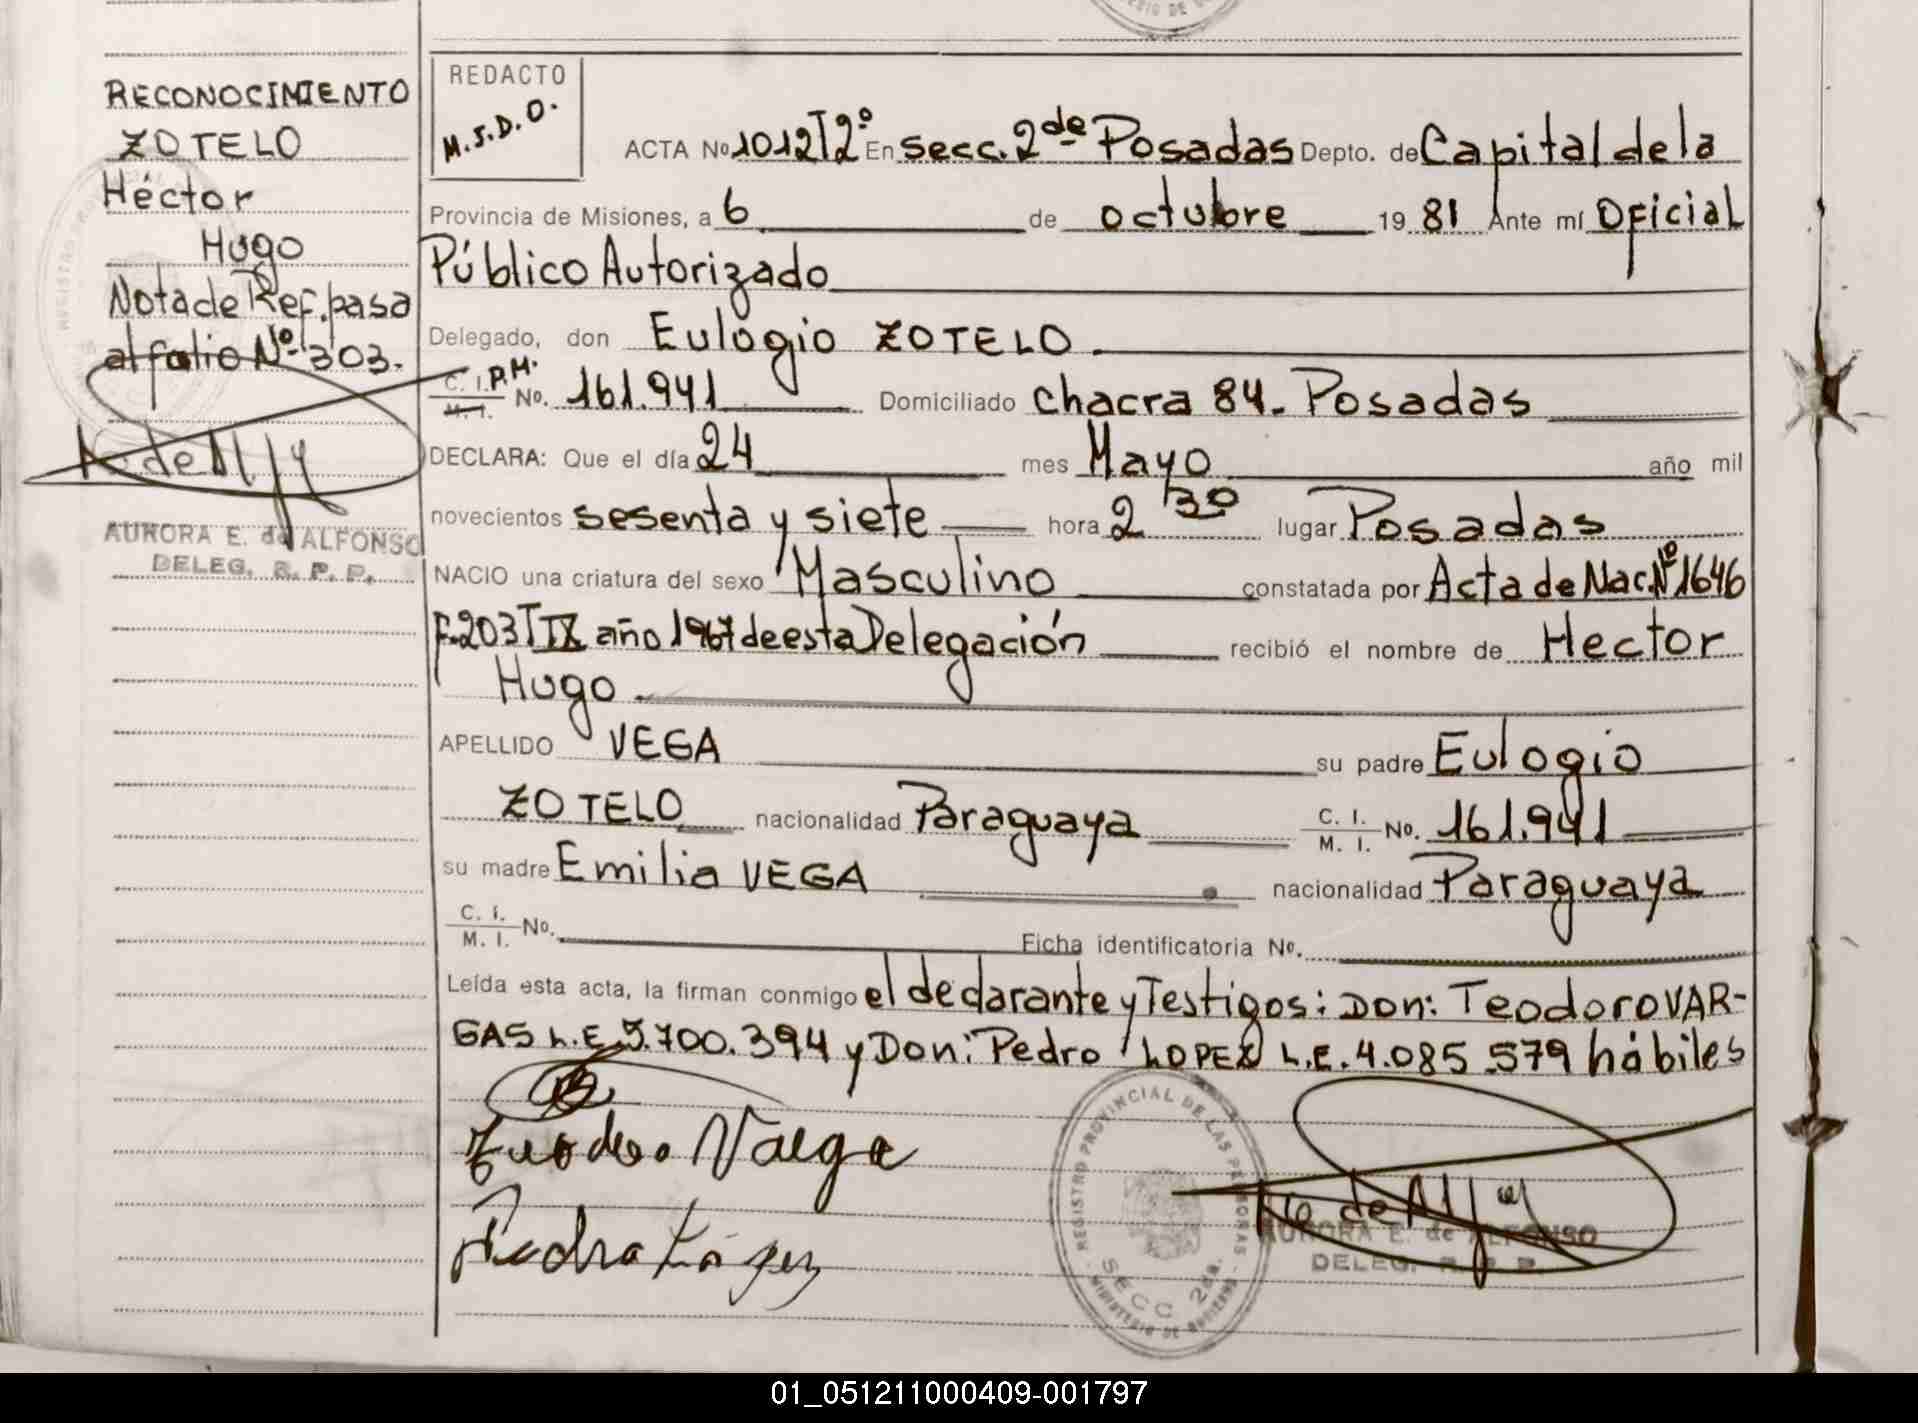 RECONOCIMIENTO
ZOTELO
Héctor
Hugo
Nota de Ref. pasa
al folio Nº 303.
AURORA E. de ALFONSO
DELEG. R. P. P.
REDACTO
M.S.D.O.
ACTA No 1012 T2º En secc. 2da Posadas Depto. de Capital de la
Provincia de Misiones, a 6 de octubre 19 81 Ante mí Oficial
Público Autorizado
Delegado, don Eulogio ZOTELO
C. I. P.M.
M. I. No. 161.941 Domiciliado Chacra 84. Posadas
DECLARA: Que el día 24 mes Mayo año mil
novecientos sesenta y siete hora 2 30 lugar Posadas
NACIO una criatura del sexo Masculino constatada por Acta de Nac. Nº 1646
F. 203 T IX año 1967 de esta Delegación recibió el nombre de Hector
Hugo
APELLIDO VEGA su padre Eulogio
ZOTELO nacionalidad Paraguaya C. I. M. I. No. 161.941
su madre Emilia VEGA nacionalidad Paraguaya
C. I. M. I. No. Ficha identificatoria No.
Leída esta acta, la firman conmigo el declarante y Testigos: Don: Teodoro VAR-
GAS L.E. 5.700.394 y Don: Pedro LOPEZ L.E. 4.085.579 hábiles
Pedro López
REGISTRO PROVINCIAL DE LAS PERSONAS
SECC. 2da.
MINISTERIO DE GOBIERNO
AURORA E. de ALFONSO
DELEG. R. P. P.
01_051211000409-001797